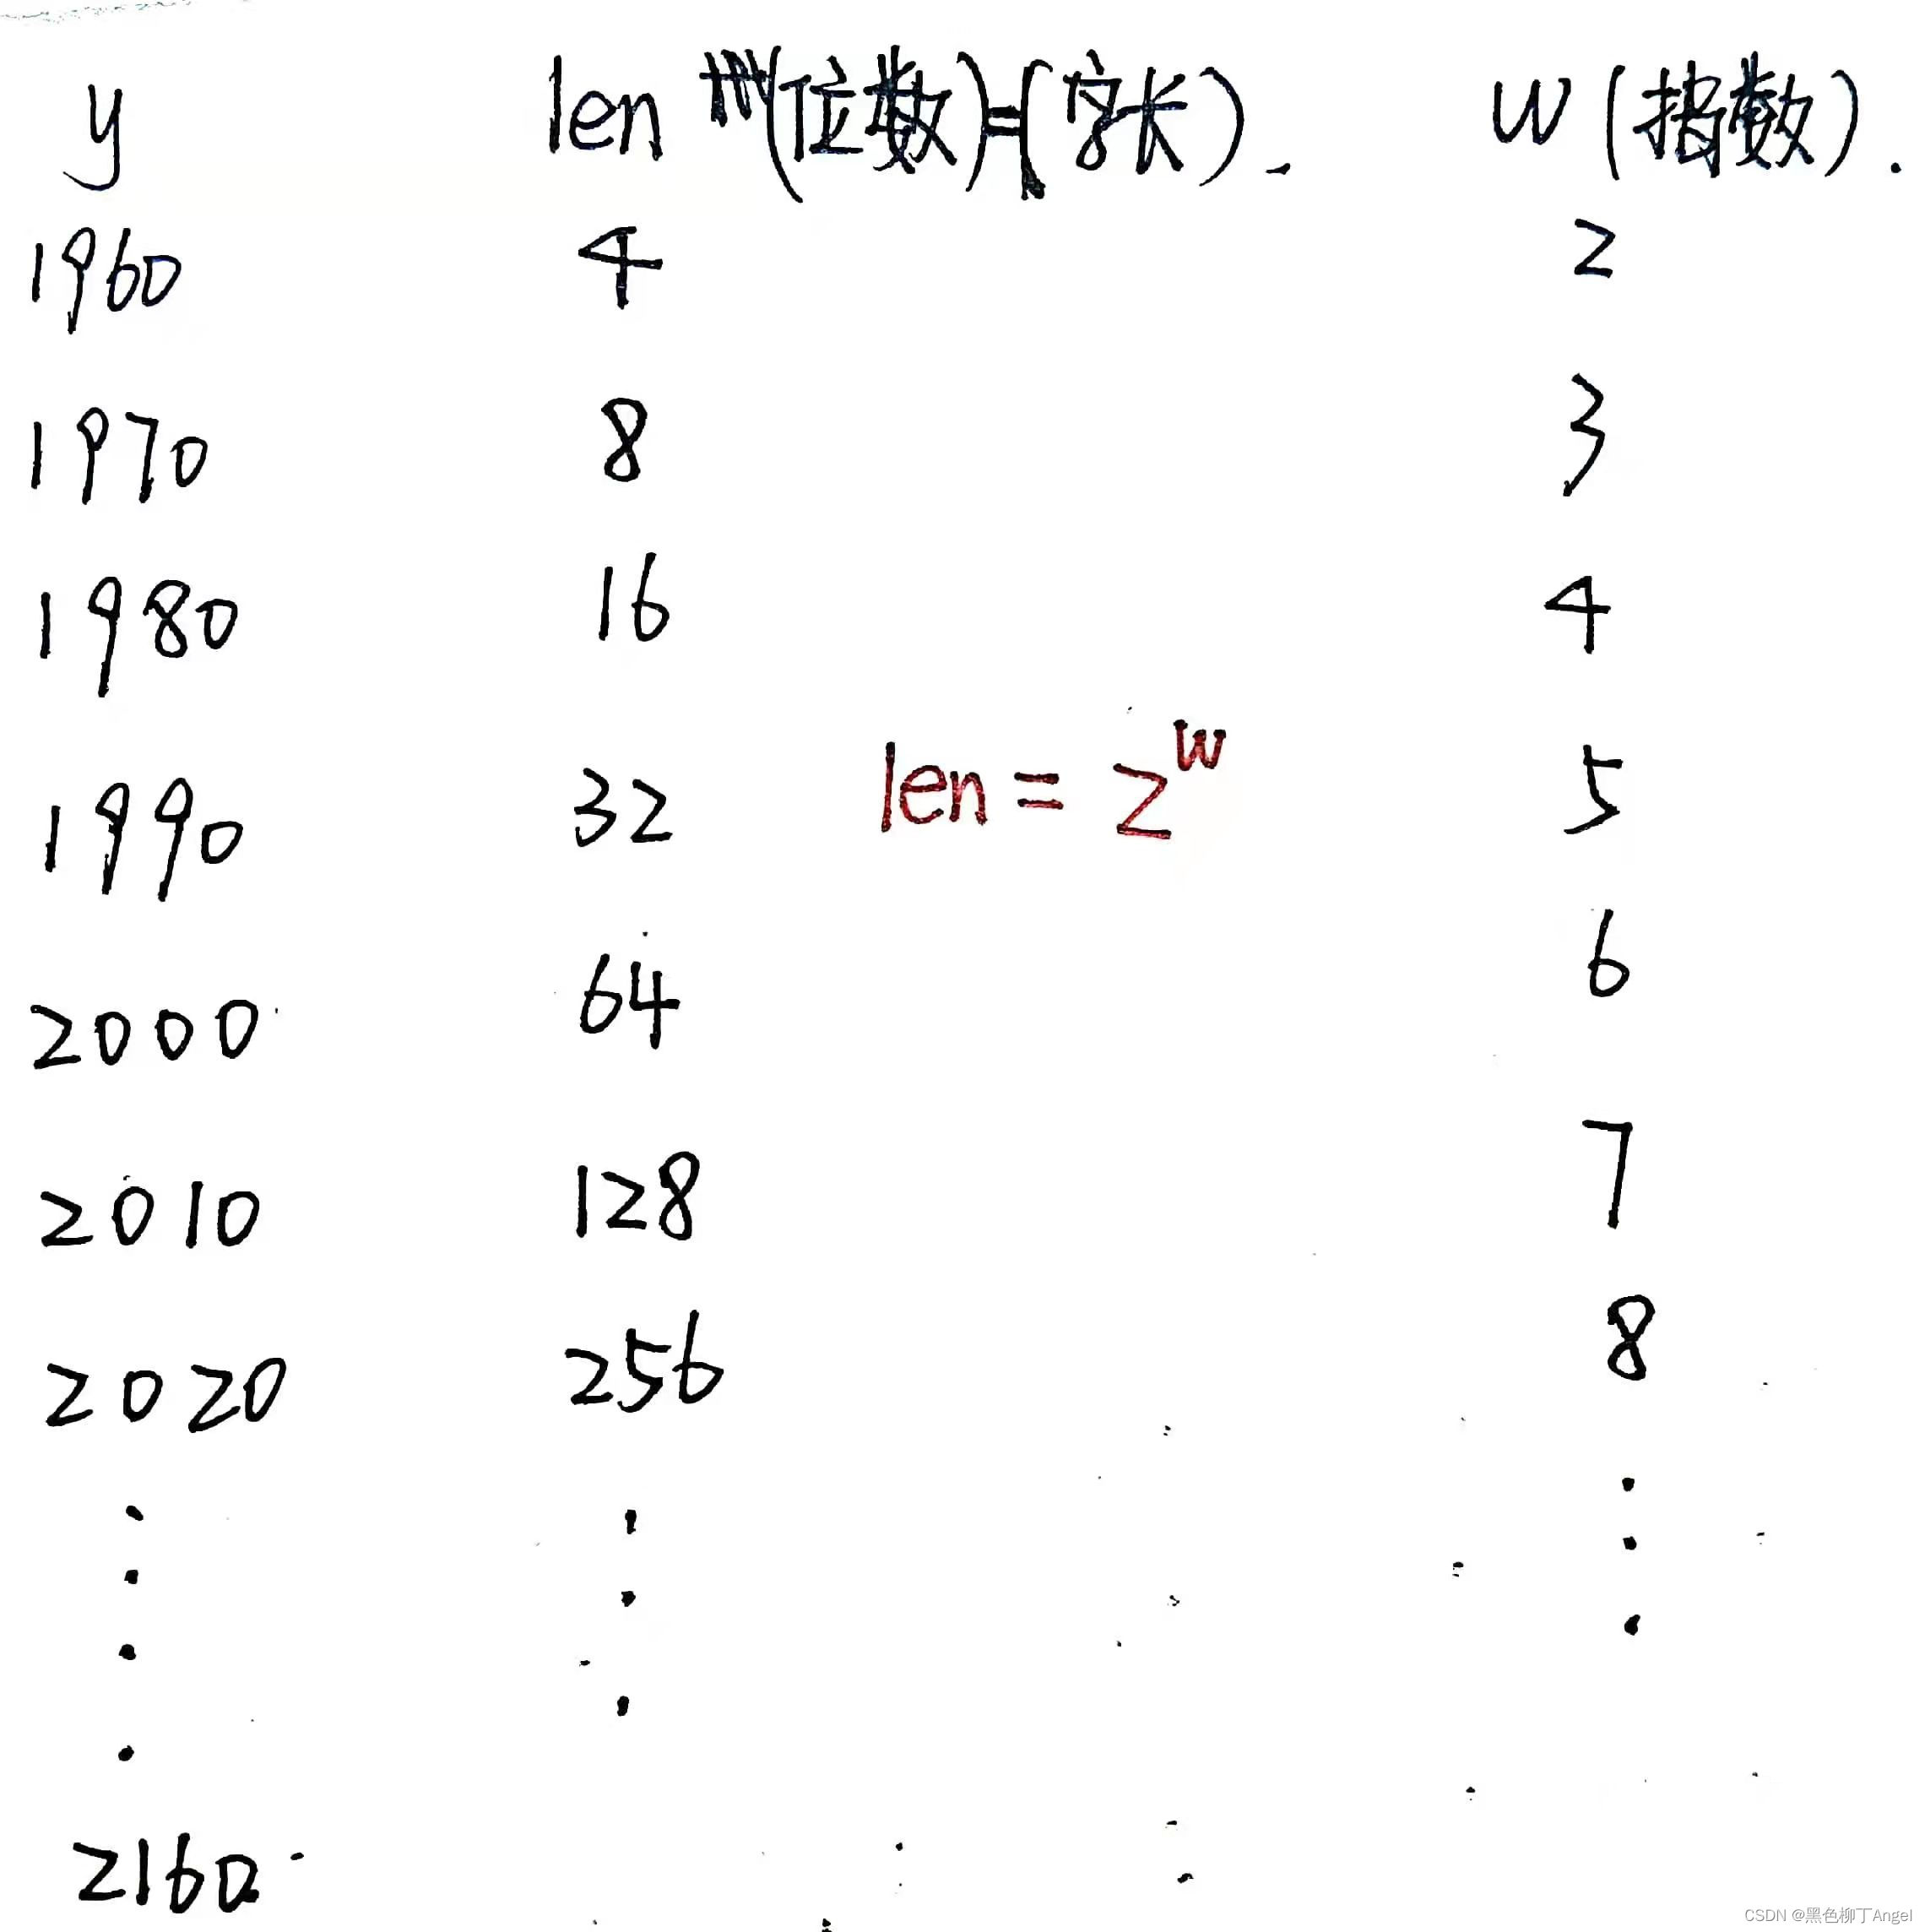 y len (位数)=(字长). w (指数).
1960 4 2
1970 8 3
1980 16 4
1990 32 len = 2^w 5
2000 64 6
2010 128 7
2020 256 8
2160
CSDN @黑色柳丁Angel